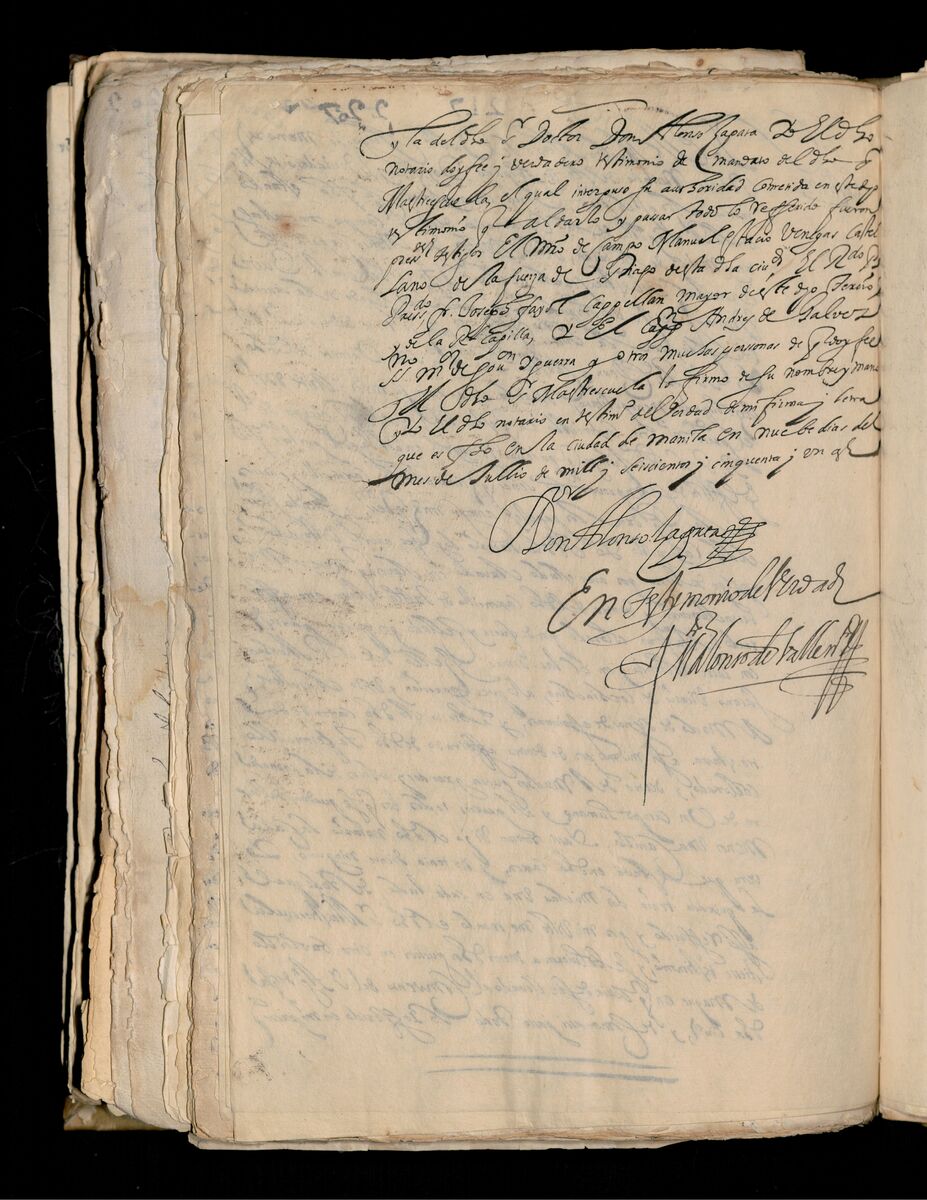 y la del dho Sr Doctor Don Alonso Zapata Yo El dho
notario doy fee y verdadero testimonio de mandato del dho Sr
Mastrescuela, el qual interpuso su authoridad cometida en este dho
testimonio q al darlo y passar todo lo refferido fueron
testigos El Mro de Campo Manuel estacio Venegas Castel
lano de la fuerza de Stiago desta dha ciud El Rdo
Joseph Cappellan mayor de este dho Tercio
y de la Rl Capilla, Y El Cappn Andres de
de gou on y guerra y otras muchas personas de q doy fee
El dho Sr Mastrescuela lo firmo de su nombre y mano
Yo El dho notario en testimo de Verdad de mi firma y letra
que es fho en la ciudad de manila en nuebe dias del
mes de Jullio de mill y seiscientos y cinquenta y un as
Don Alonso Zapata
En testymonio de Verdad
Alonso de Valle